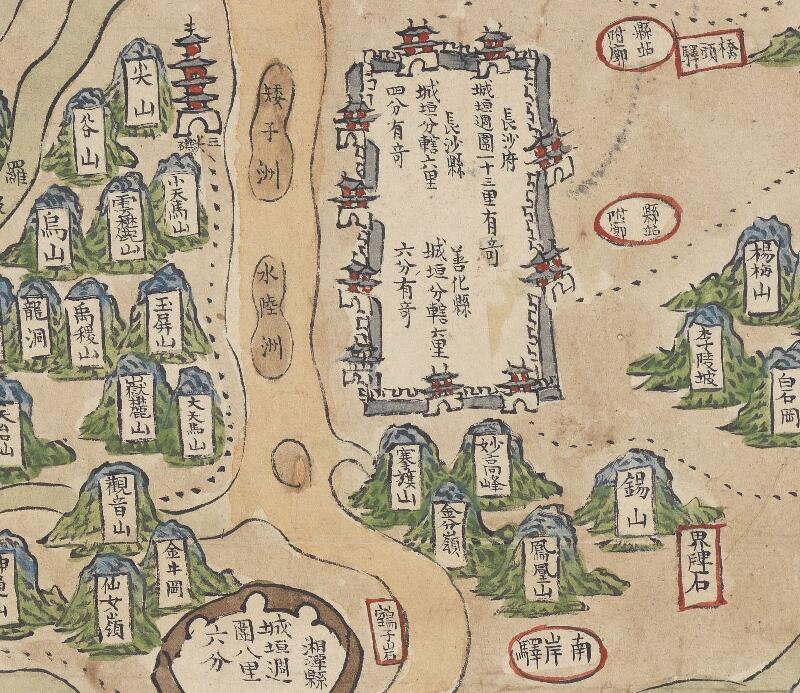 長沙府
城垣週圍一十三里有竒
長沙縣
城垣分轄六里
四分有竒
善化縣
城垣分轄六里
六分有竒
縣站
附廓
橋頭驛
縣站
附廓
楊梅山
李陵坡
白石岡
尖山
谷山
小天馬山
雲麓山
烏山
羅
玉屏山
禹稷山
龍洞
嶽麓山
大天馬山
天台山
觀音山
金牛岡
仙女嶺
矮子洲
水陸洲
妙高峰
金分嶺
鳳凰山
錫山
界牌石
南岸驛
鶴子岩
湘潭縣
城垣週
圍八里
六分